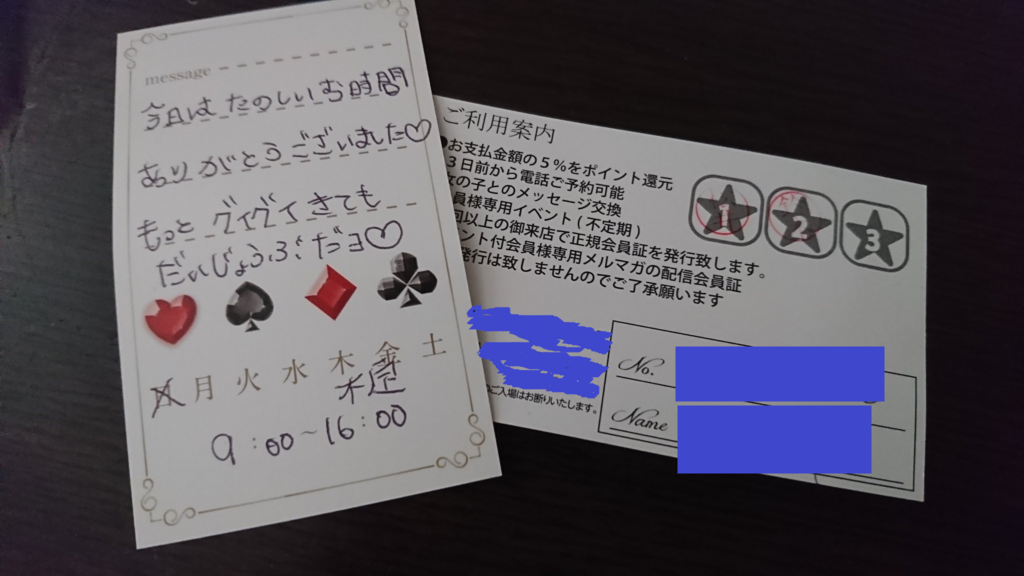 message
今日はたのしいお時間
ありがとうございました♡
もっとグイグイきても
だいじょうぶだョ♡
日 月 火 水 木 金 土
9:00~16:00
ご利用案内
●お支払金額の5%をポイント還元
3日前から電話ご予約可能
の子とのメッセージ交換
員様専用イベント(不定期)
回以上の御来店で正規会員証を発行致します。
ント付会員様専用メルマガの配信会員証
発行は致しませんのでご了承願います
1 2 3
のご入場はお断りいたします。
No.
Name